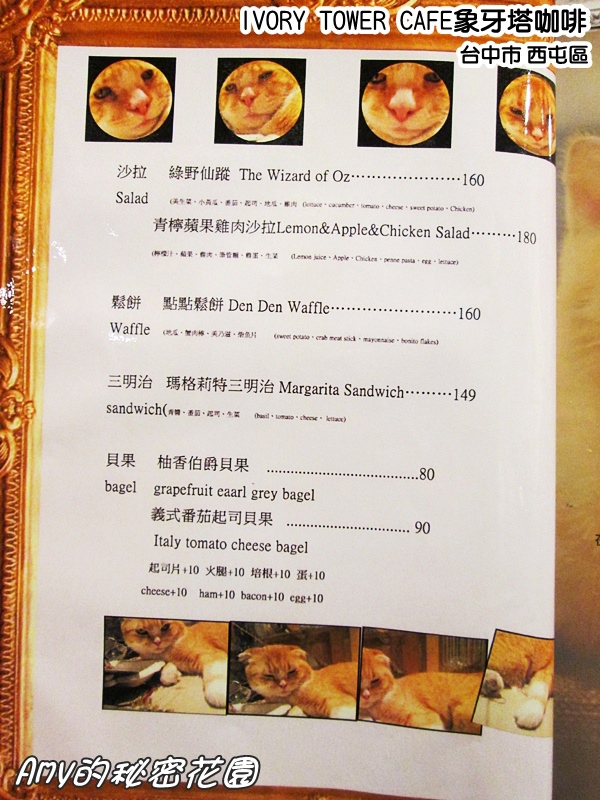 IVORY TOWER CAFE象牙塔咖啡
台中市 西屯區
沙拉 綠野仙蹤 The Wizard of Oz·····················160
Salad (美生菜、小黃瓜、番茄、起司、地瓜、雞肉 (lettuce、cucumber、tomato、cheese、sweet potato、Chicken)
青檸蘋果雞肉沙拉Lemon&Apple&Chicken Salad·········180
(檸檬汁、蘋果、雞肉、筆管麵、雞蛋、生菜 (Lemon juice、Apple、Chicken、penne pasta、egg、lettuce)
鬆餅 點點鬆餅 Den Den Waffle························160
Waffle (地瓜、蟹肉棒、美乃滋、柴魚片 (sweet potato、crab meat stick、mayonnaise、bonito flakes)
三明治 瑪格莉特三明治 Margarita Sandwich·········149
sandwich(青醬、番茄、起司、生菜 (basil、tomato、cheese、lettuce)
貝果 柚香伯爵貝果 .....................................80
bagel grapefruit eaarl grey bagel
義式番茄起司貝果 .............................. 90
Italy tomato cheese bagel
起司片+10 火腿+10 培根+10 蛋+10
cheese+10 ham+10 bacon+10 egg+10
Amy的秘密花園